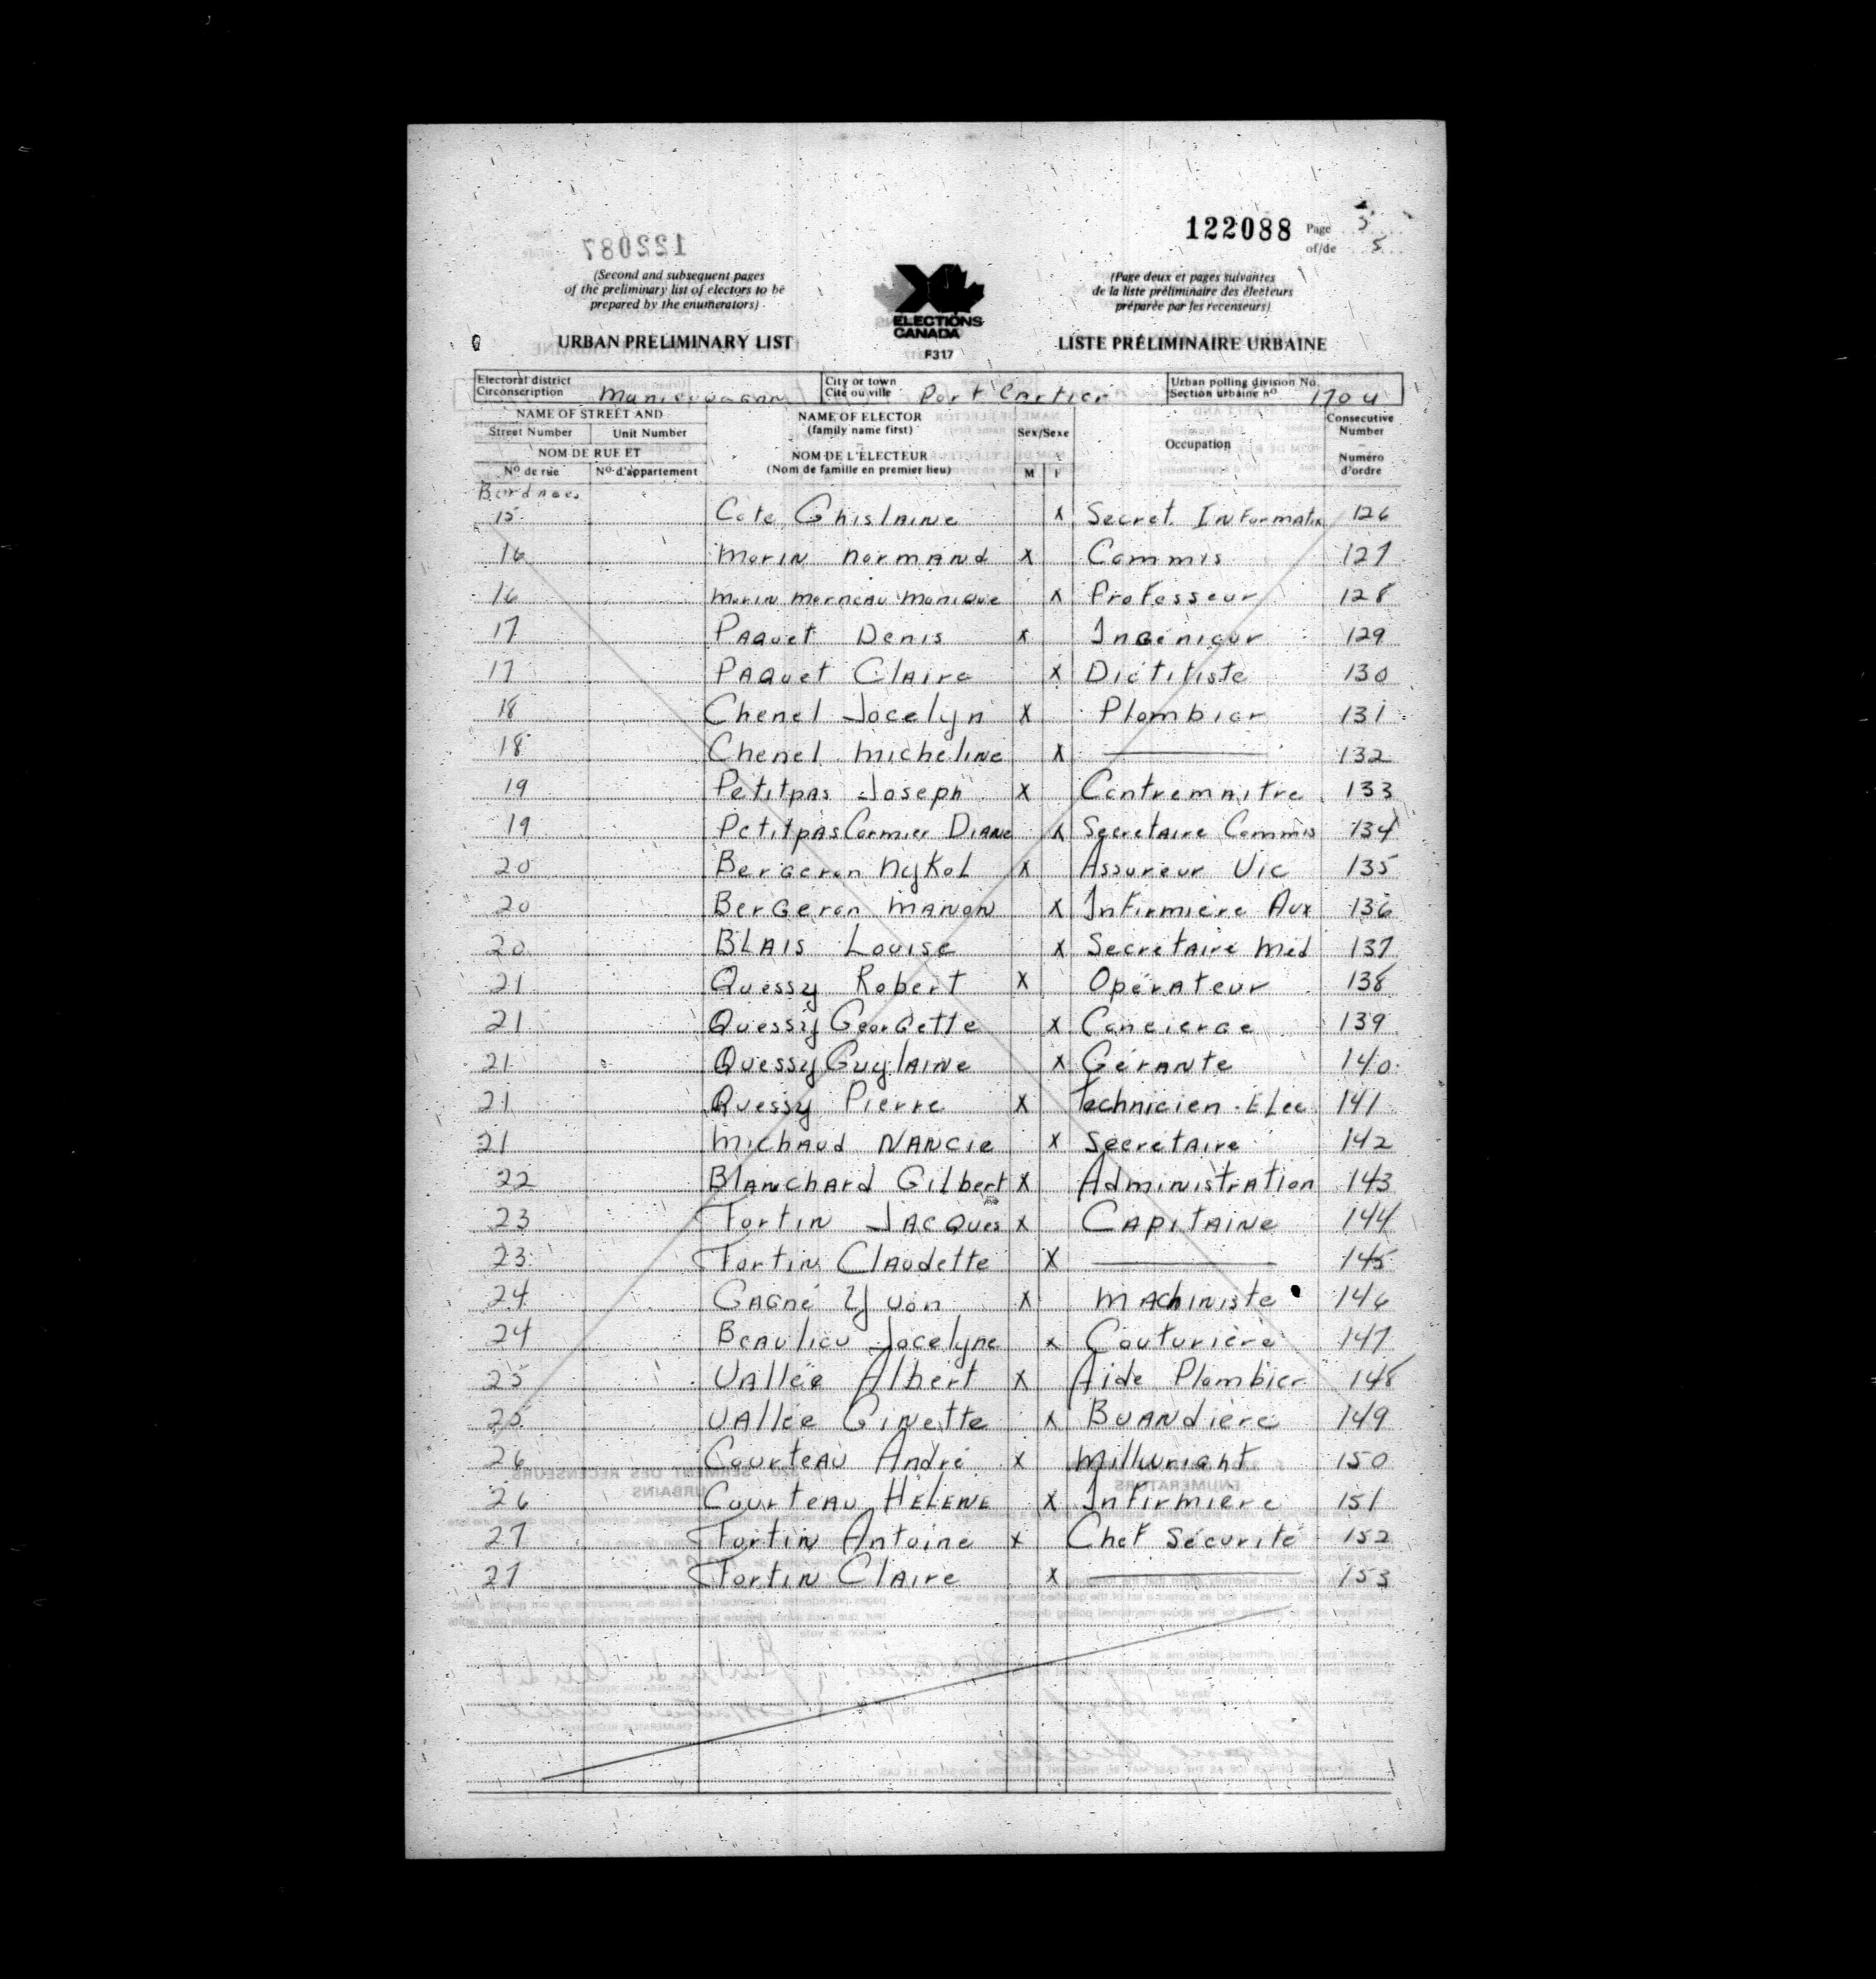 122088 Page 5
of/de 5
(Second and subsequent pages
of the preliminary list of electors to be
prepared by the enumerators)
URBAN PRELIMINARY LIST
ELECTIONS
CANADA
F317
(Page deux et pages suivantes
de la liste préliminaire des électeurs
préparée par les recenseurs)
LISTE PRÉLIMINAIRE URBAINE
Electoral district
Circonscription Manicouagan
City or town
Cité ou ville Port Cartier
Urban polling division No.
Section urbaine nº 170 U
NAME OF STREET AND
Street Number Unit Number
NOM DE RUE ET
Nº de rue Nº d'appartement
NAME OF ELECTOR
(family name first)
NOM DE L'ÉLECTEUR
(Nom de famille en premier lieu)
Sex/Sexe
M F
Occupation
Consecutive
Number
Numéro
d'ordre
15 Cote Ghislaine X Secret. Informatix 126
16 Morin Normand X Commis 127
16 Morin Morneau Monique X Professeur 128
17 Paquet Denis X Ingénieur 129
17 Paquet Claire X Diétitiste 130
18 Chenel Jocelyn X Plombier 131
18 Chenel Micheline X 132
19 Petitpas Joseph X Contremaitre 133
19 Petitpas Cormier Diane X Secretaire Commis 134
20 Bergeron Nykol X Assureur Vie 135
20 Bergeron Manon X Infirmière Aux 136
20 Blais Louise X Secrétaire Med 137
21 Quessy Robert X Opérateur 138
21 Quessy Georgette X Concierge 139
21 Quessy Guylaine X Gérante 140
21 Quessy Pierre X Technicien Elec 141
21 Michaud Nancie X Secrétaire 142
22 Blanchard Gilbert X Administration 143
23 Fortin Jacques X Capitaine 144
23 Fortin Claudette X 145
24 Gagné Yvon X Machiniste 146
24 Beaulieu Jocelyne X Couturière 147
25 Vallée Albert X Aide Plombier 148
25 Vallée Ginette X Buandière 149
26 Courteau André X Millwright 150
26 Courteau Hélène X Infirmière 151
27 Fortin Antoine X Chef Sécurité 152
27 Fortin Claire X 153